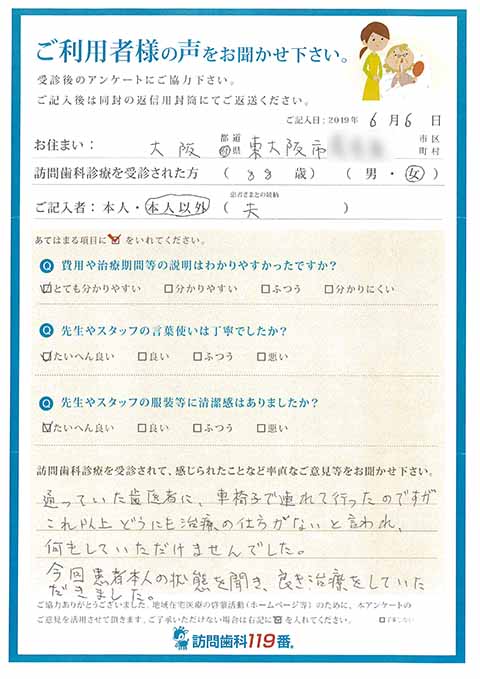 ご利用者様の声をお聞かせ下さい。
受診後のアンケートにご協力下さい。
ご記入後は同封の返信用封筒にてご返送ください。
ご記入日：2019年 6月6日
お住まい： 大阪 都道府県 東大阪市 市区町村
訪問歯科診療を受診された方 （ 88 歳） （ 男・女 ）
患者さまとの続柄
ご記入者：本人・本人以外 （ 夫 ）
あてはまる項目に☑をいれてください。
Q 費用や治療期間等の説明はわかりやすかったですか？
☑とても分かりやすい □分かりやすい □ふつう □分かりにくい
Q 先生やスタッフの言葉使いは丁寧でしたか？
☑たいへん良い □良い □ふつう □悪い
Q 先生やスタッフの服装等に清潔感はありましたか？
☑たいへん良い □良い □ふつう □悪い
訪問歯科診療を受診されて、感じられたことなど率直なご意見等をお聞かせ下さい。
通っていた歯医者に、車椅子で連れて行ったのですが
これ以上どうにも治療の仕方がないと言われ、
何もしていただけませんでした。
今回患者本人の状態を聞き、良き治療をしていた
だきました。
ご協力ありがとうございました。地域在宅医療の啓蒙活動（ホームページ等）のために、本アンケートの
ご意見を活用させて頂きます。ご了承いただけない場合は右記に☑を入れてください。 □了承しない
訪問歯科119番®